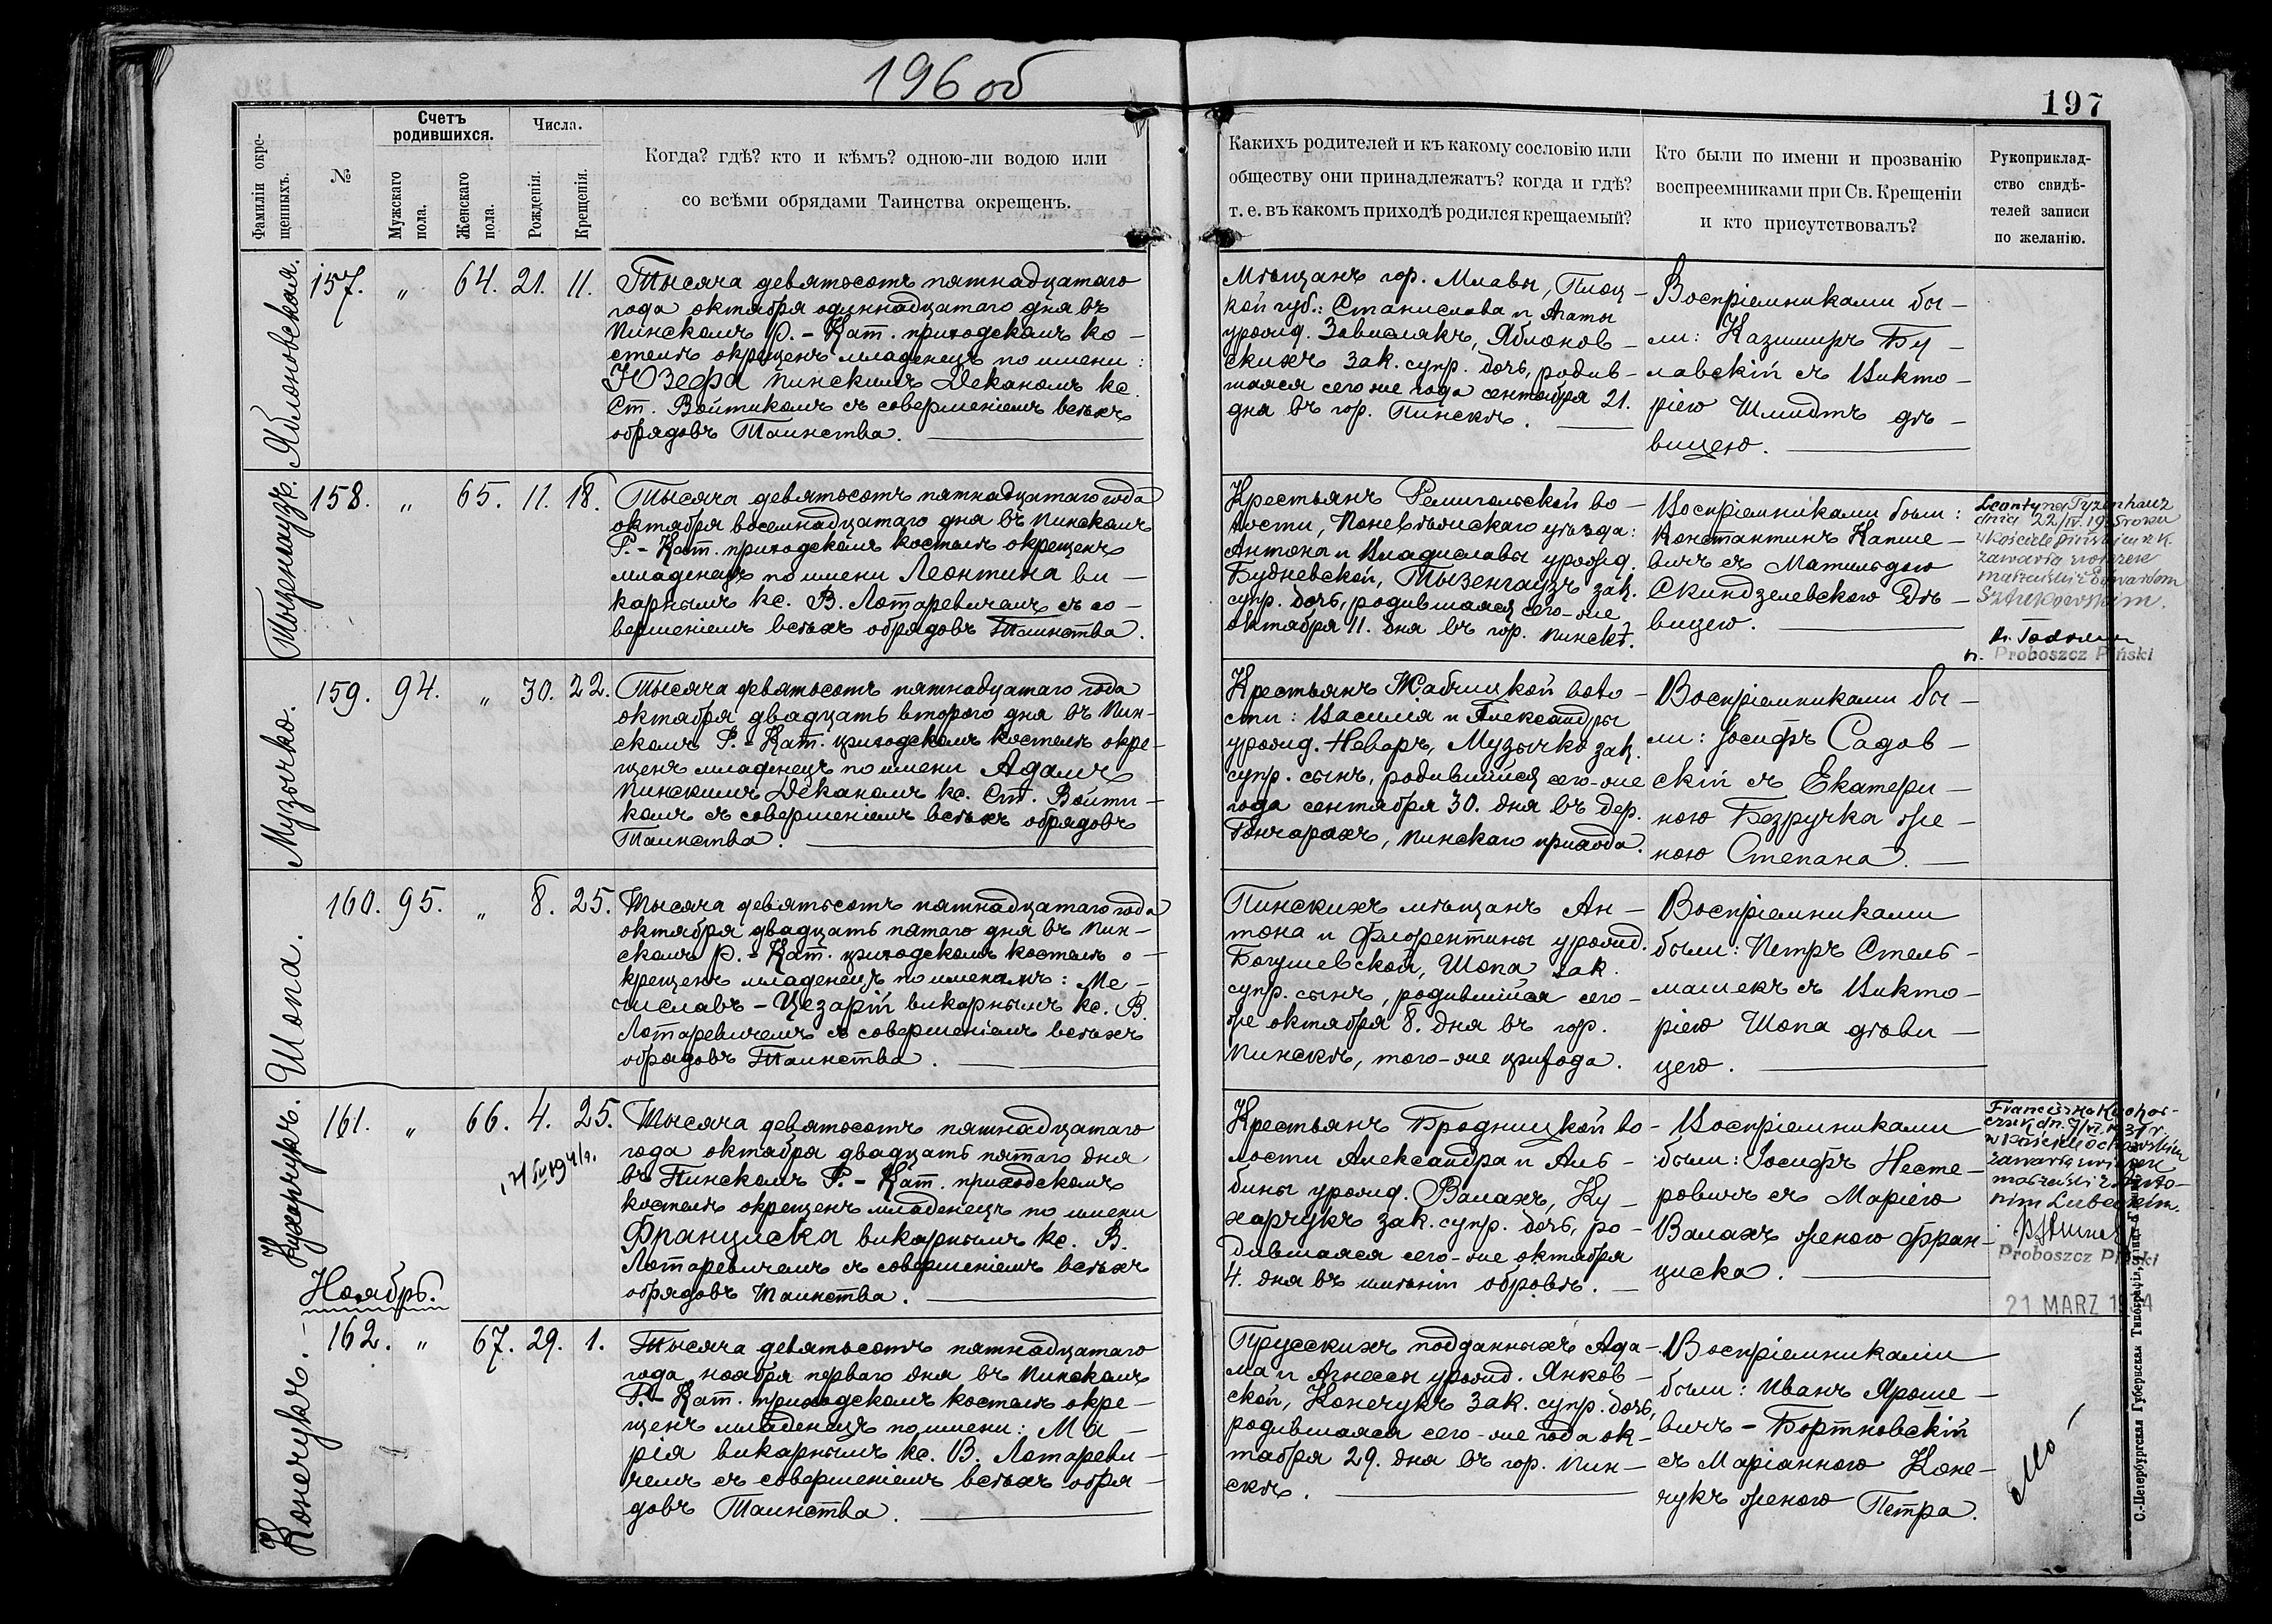 196 об
197
Фамиліи окре-
щенныхъ.
№
Счетъ
родившихся.
Мужскаго
пола.
Женскаго
пола.
Числа.
Рожденія.
Крещенія.
Когда? гдѣ? кто и кѣмъ? одною-ли водою или
со всѣми обрядами Таинства окрещенъ.
Какихъ родителей и къ какому сословію или
обществу они принадлежатъ? когда и гдѣ?
т. е. въ какомъ приходѣ родился крещаемый?
Кто были по имени и прозванію
воспреемниками при Св. Крещеніи
и кто присутствовалъ?
Рукоприклад-
ство свидѣ-
телей записи
по желанію.
Яблоновская.
157. " 64. 21. 11.
Тысяча девятьсотъ пятнадцатаго
года октября одиннадцатаго дня въ
Пинскомъ р.-Кат. приходскомъ ко-
стелѣ окрещенъ младенецъ по имени:
Юзефа Пинскимъ Деканомъ кс.
Ст. Войтикомъ съ совершеніемъ всѣхъ
обрядовъ Таинства.
Мѣщанъ гор. Млавы, Плоц-
кой губ.: Станислава и Агаты
урожд. Завислякъ, Яблонов-
скихъ зак. супр. дочь, родив-
шаяся сего же года сентября 21.
дня въ гор. Пинскѣ.
Воспріемниками бы-
ли: Казимиръ Бу-
лавскій съ Викто-
ріею Шмидтъ дѣ-
вицею.
Тызенгаузъ.
158. " 65. 11. 18.
Тысяча девятьсотъ пятнадцатаго года
октября восемнадцатаго дня въ Пинскомъ
Р.-Кат. приходскомъ костелѣ окрещенъ
младенецъ по имени Леонтина ви-
карнымъ кс. В. Лотаревичемъ съ со-
вершеніемъ всѣхъ обрядовъ Таинства.
Крестьянъ Ремигольской во-
лости, Поневѣжскаго уѣзда:
Антона и Владиславы урожд.
Будневской, Тызенгаузъ зак.
супр. дочь, родившаяся сего-же
октября 11. дня въ гор. Пинскѣ.
Воспріемниками были:
Константинъ Капше-
вичъ съ Матильдою
Скиндзелевскою дѣ-
вицею.
Leontyna Tyzenhauz
dnia 22/IV.19 roku
w kościele pińskim
zawarła związek
małżeński z Edwardem
Sztukowskim.
Proboszcz Piński
Музычко.
159. 94. " 30. 22.
Тысяча девятьсотъ пятнадцатаго года
октября двадцать второго дня въ Пин-
скомъ Р.-Кат. приходскомъ костелѣ окре-
щенъ младенецъ по имени Адамъ
Пинскимъ Деканомъ кс. Ст. Войти-
комъ съ совершеніемъ всѣхъ обрядовъ
Таинства.
Крестьянъ Жабчицкой воло-
сти: Василія и Александры
урожд. Неваръ, Музычко зак.
супр. сынъ, родившійся сего-же
года сентября 30. дня въ дер.
Гончарахъ, Пинскаго прихода.
Воспріемниками бы-
ли: Іосифъ Садов-
скій съ Екатери-
ною Безручка же-
ною Степана.
Шопа.
160. 95. " 8. 25.
Тысяча девятьсотъ пятнадцатаго года
октября двадцать пятаго дня въ Пин-
скомъ р.-Кат. приходскомъ костелѣ о-
крещенъ младенецъ по именамъ: Ме-
числавъ-Цезарій викарнымъ кс. В.
Лотаревичемъ съ совершеніемъ всѣхъ
обрядовъ Таинства.
Пинскихъ мѣщанъ Ан-
тона и Флорентины урожд.
Богушевской, Шопа зак.
супр. сынъ, родившійся сего-
же октября 8. дня въ гор.
Пинскѣ, того-же прихода.
Воспріемниками
были: Петръ Стель-
машекъ съ Викто-
ріею Шопа дѣви-
цею.
Кухарчукъ.
161. " 66. 4. 25.
Тысяча девятьсотъ пятнадцатаго
года октября двадцать пятаго дня
въ Пинскомъ Р.-Кат. приходскомъ
костелѣ окрещенъ младенецъ по имени
Франциска викарнымъ кс. В.
Лотаревичемъ съ совершеніемъ всѣхъ
обрядовъ Таинства.
Крестьянъ Бродницкой во-
лости Александра и Аль-
бины урожд. Валахъ, Ку-
харчукъ зак. супр. дочь, ро-
дившаяся сего-же октября
4. дня въ имѣніи Обровѣ.
Воспріемниками
были: Іосифъ Несте-
ровичъ съ Маріею
Валахъ женою Фран-
циска.
Franciszka Kuchar-
czuk
zawarła związek
małżeński z Anto-
nim Lubeckim.
Proboszcz Piński
21 MARZ 1934
Ноябрь.
Конечукъ.
162. " 67. 29. 1.
Тысяча девятьсотъ пятнадцатаго
года ноября перваго дня въ Пинскомъ
Р.-Кат. приходскомъ костелѣ окре-
щенъ младенецъ по имени: Ма-
рія викарнымъ кс. В. Лотареви-
чемъ съ совершеніемъ всѣхъ обря-
довъ Таинства.
Прусскихъ подданныхъ Ада-
ма и Агнессы урожд. Янков-
ской, Конечукъ зак. супр. дочь,
родившаяся сего-же года ок-
тября 29. дня въ гор. Пин-
скѣ.
Воспріемниками
были: Иванъ Яроше-
вичъ-Бортновскій
съ Маріанною Коне-
чукъ женою Петра.
С.-Петербургская Губернская Типографія,